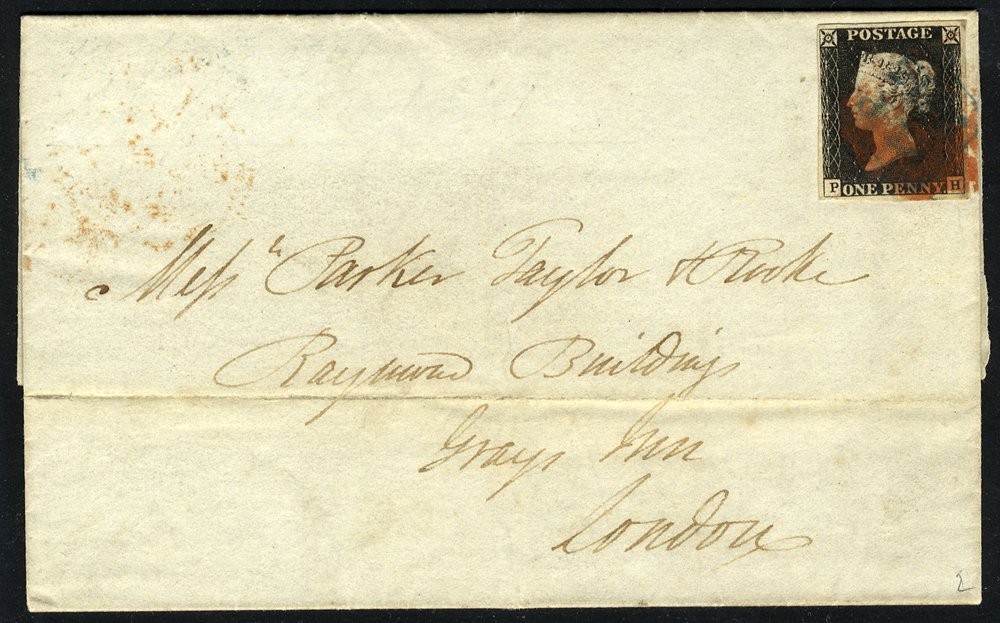 POSTAGE
P ONE PENNY H
Messrs Parker Taylor & Rooke
Raymond Buildings
Grays Inn
London
2